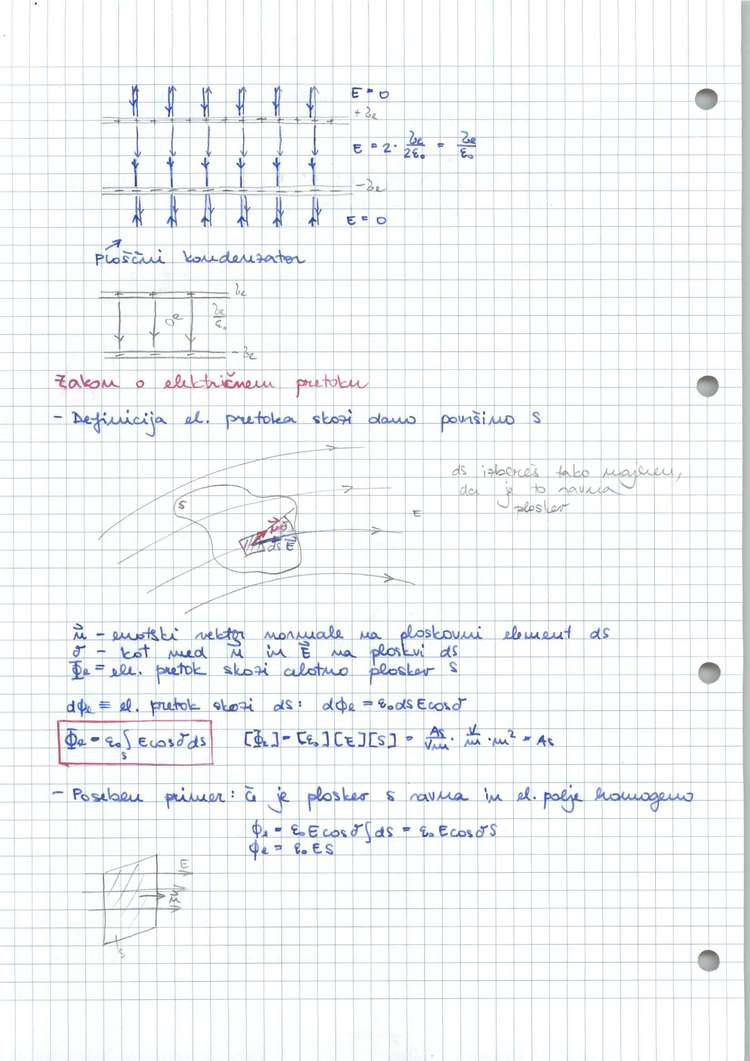 E = 0
+ γe
E = 2 · γe/2ε₀ = γe/ε₀
- γe
E = 0
Ploščni kondenzator
γe
γe/ε₀
- γe
Zakon o električnem pretoku
- Definicija el. pretoka skozi dano površino S
ds izbereš tako majhen,
da je to ravna
ploskev
S
n⃗ ϑ
ds E⃗
E
n⃗ - enotski vektor normale na ploskovni element ds
ϑ - kot med n⃗ in E⃗ na ploskvi ds
Φe = ele. pretok skozi celotno ploskev S
dϕe ≡ el. pretok skozi ds: dϕe = ε₀dsEcosϑ
Φe = ε₀∫s Ecosϑds [Φe] = [ε₀][E][S] = As/Vm · V/m · m² = As
- Poseben primer: Če je ploskev s ravna in el. polje homogeno
ϕe = ε₀Ecosϑ∫ds = ε₀EcosϑS
ϕe = ε₀ES
E
n⃗
S